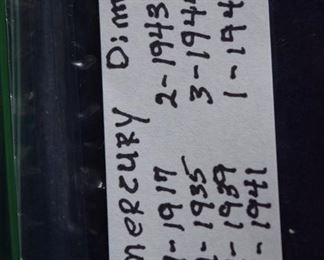 mercury Dim
1-1917 2-1943
1-1935 3-194
-1939 1-194
-1941